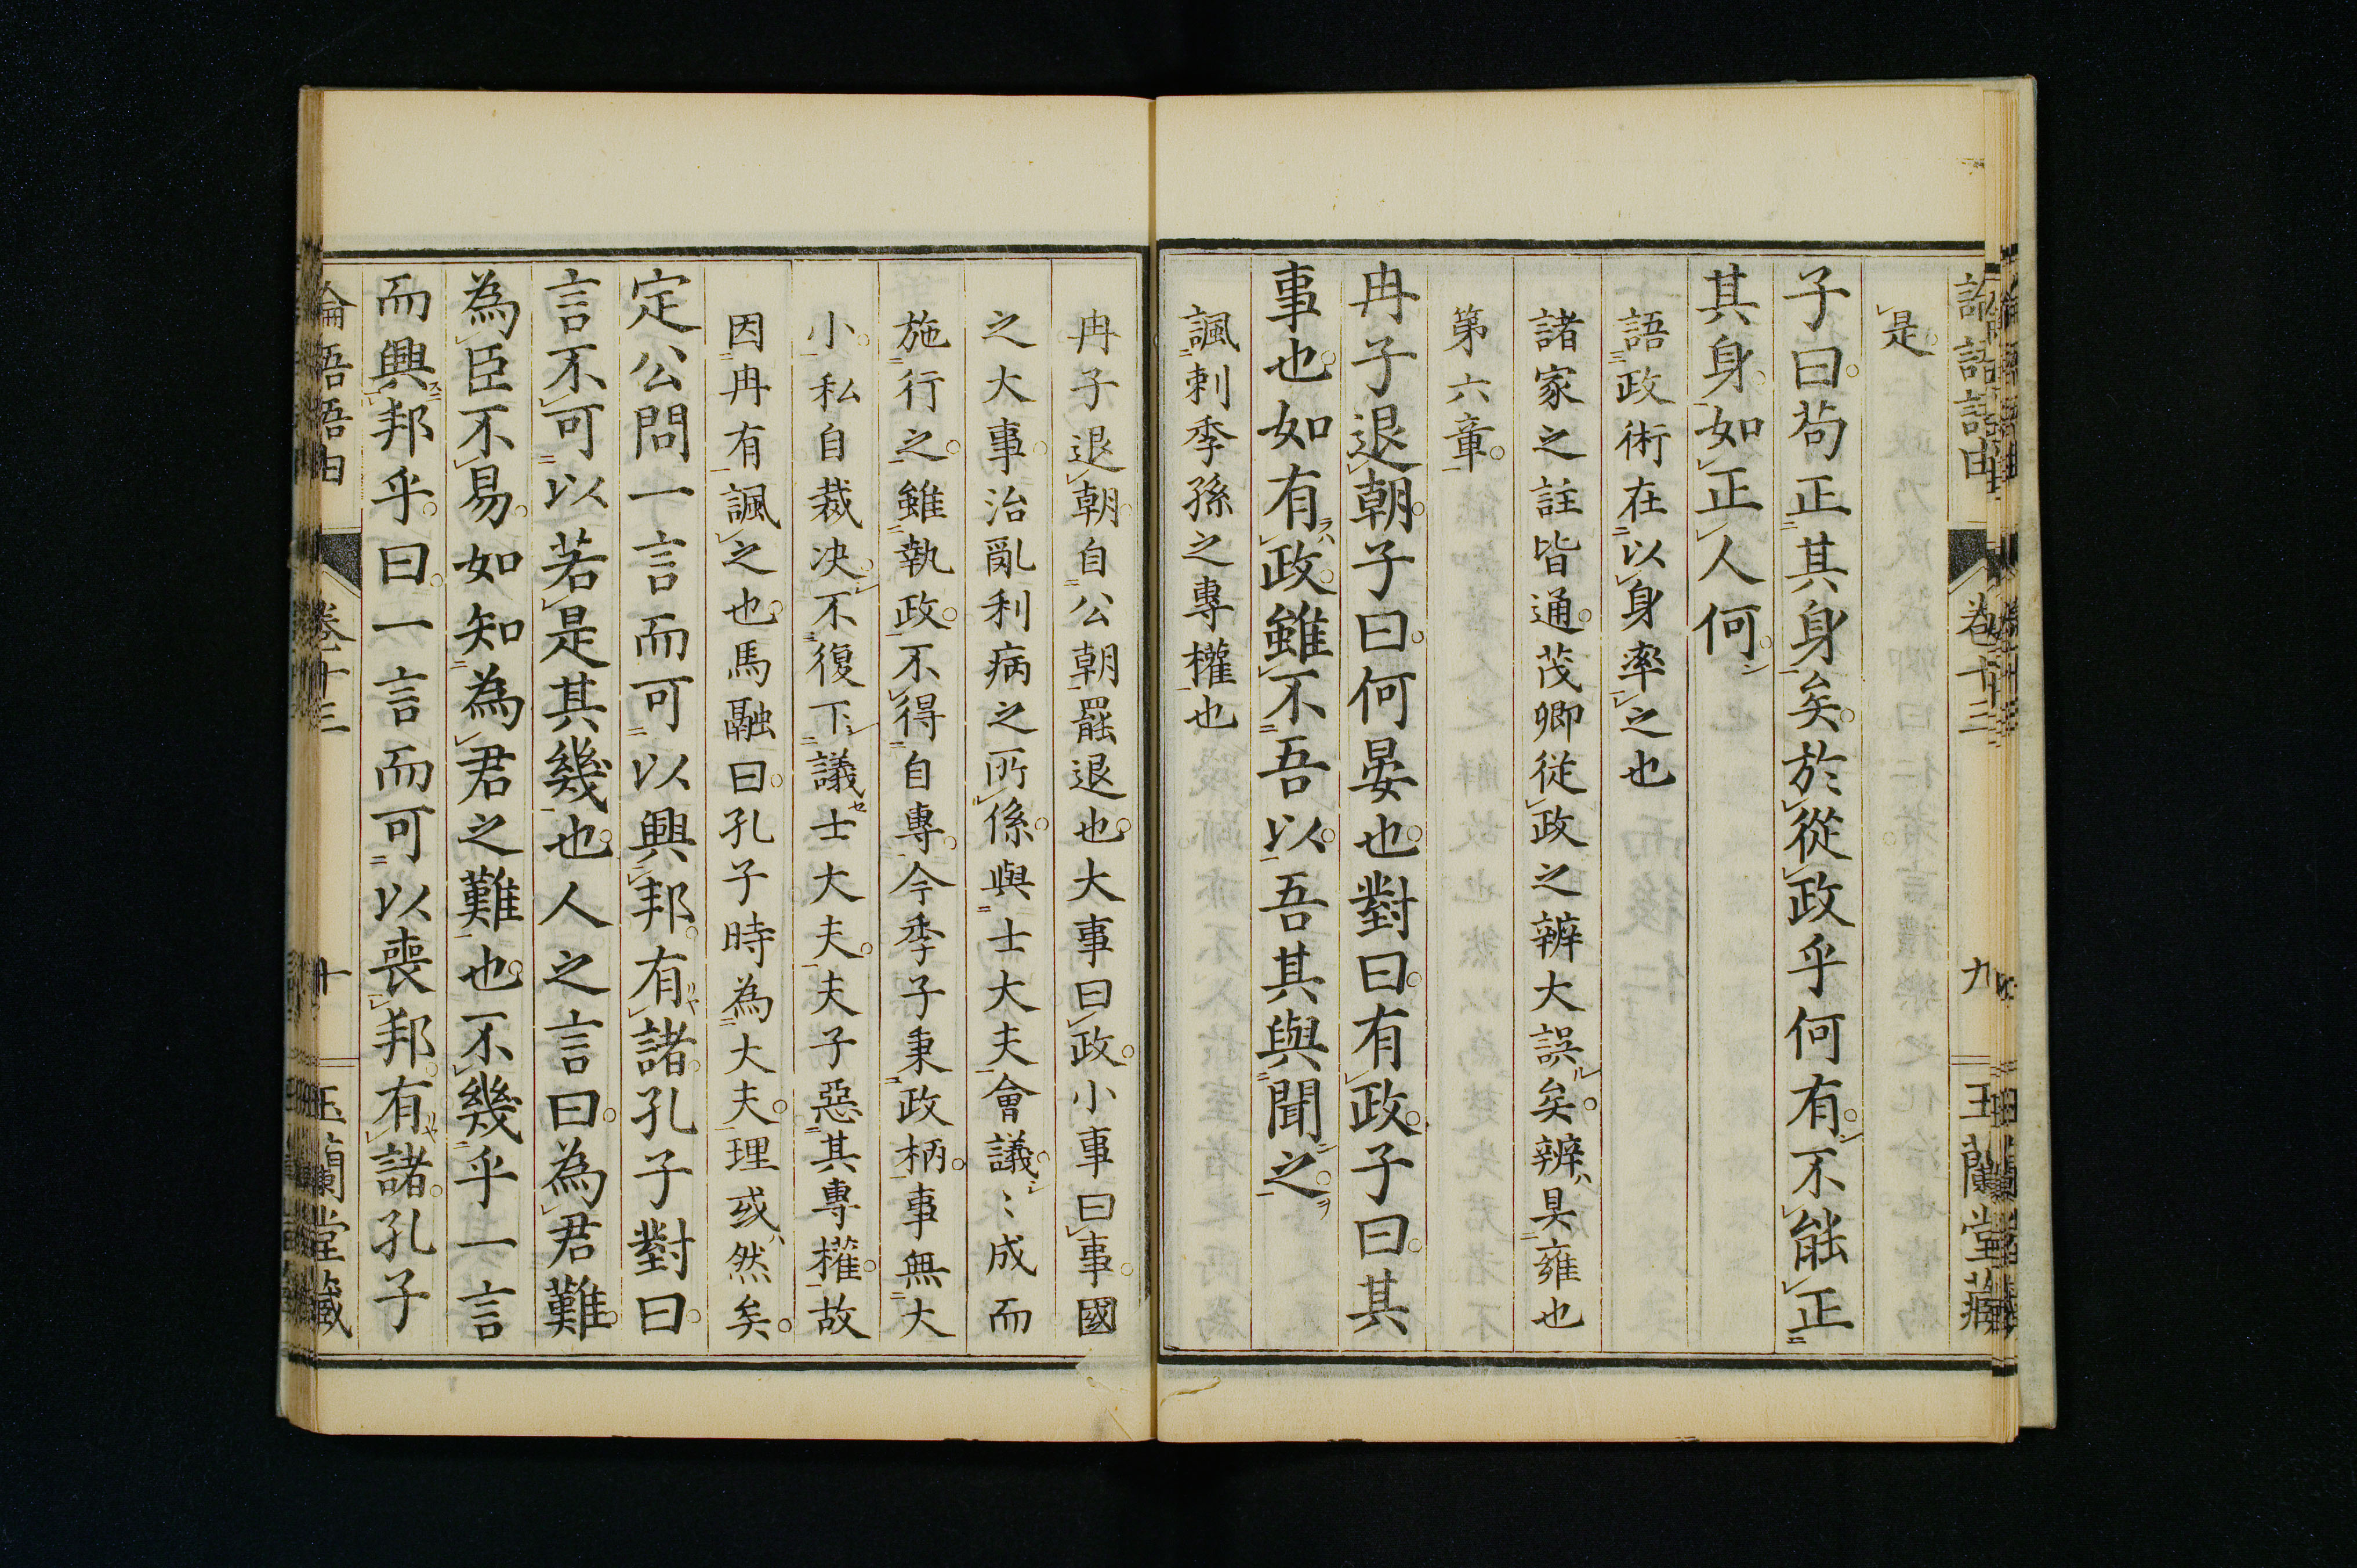 是
子曰苟正其身矣於從政乎何有不能正
其身如正人何
語政術在以身率之也
諸家之註皆通茂卿從政之辨大誤矣辨具雍也
第六章
冉子退朝子曰何晏也對曰有政子曰其
事也如有政雖不吾以吾其與聞之
諷刺季孫之專權也
冉子退朝自公朝罷退也大事曰政小事曰事國
之大事治亂利病之所係與士大夫會議〻成而
施行之雖執政不得自專今季子秉政柄事無大
小私自裁决不復下議士大夫夫子惡其專權故
因冉有諷之也馬融曰孔子時為大夫理或然矣
定公問一言而可以興邦有諸孔子對曰
言不可以若是其幾也人之言曰為君難
為臣不易如知為君之難也不幾乎一言
而興邦乎曰一言而可以喪邦有諸孔子
論語語由 卷十三 十 玉蘭堂藏